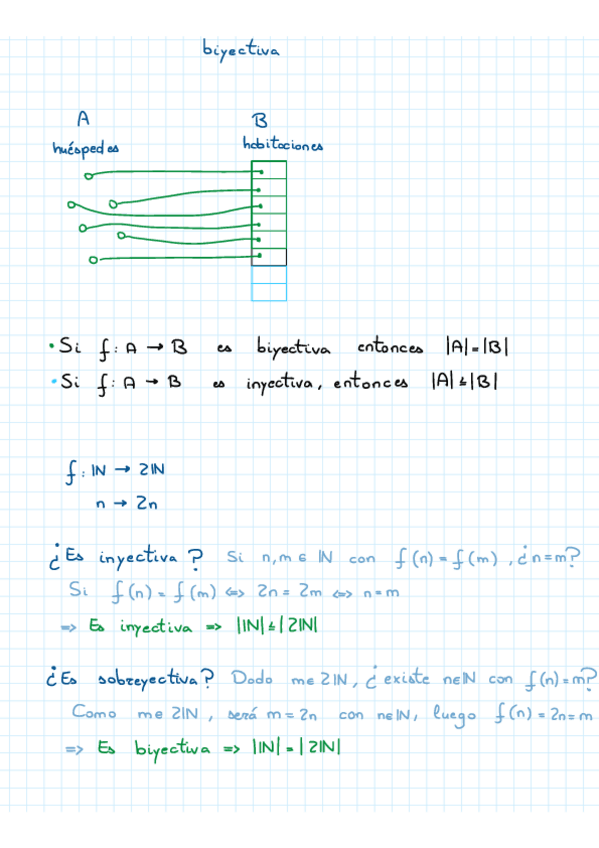 biyectiva
A B
huéspedes habitaciones
• Si f: A → B es biyectiva entonces |A| = |B|
• Si f: A → B es inyectiva, entonces |A| ≤ |B|
f: IN → 2IN
n → 2n
¿Es inyectiva? Si n,m ∈ IN con f(n) = f(m), ¿n=m?
Si f(n) = f(m) <=> 2n = 2m <=> n=m
=> Es inyectiva => |IN| ≤ |2IN|
¿Es sobreyectiva? Dado m∈2IN, ¿existe n∈IN con f(n)=m?
Como m∈2IN, será m=2n con n∈IN, luego f(n)=2n=m
=> Es biyectiva => |IN| = |2IN|